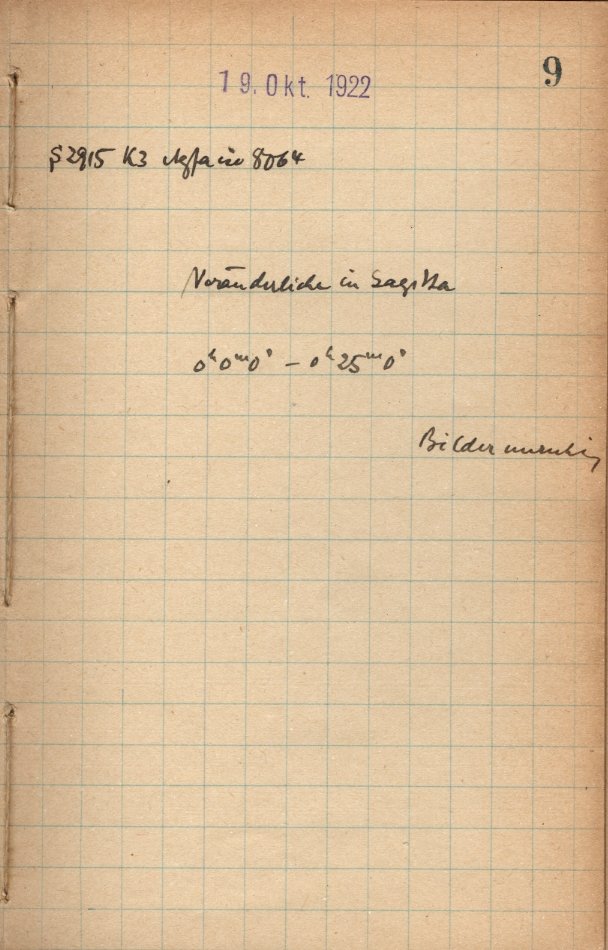 19. Okt. 1922
9
S 2915 K3 Agfa iso 8064
Veränderliche in Sagitta
0ʰ0ᵐ0ˢ – 0ʰ25ᵐ0ˢ
Bilder unruhig